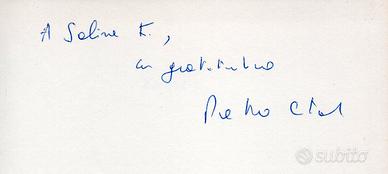 A Saline K.,
con gratitudine
Pietro
subito